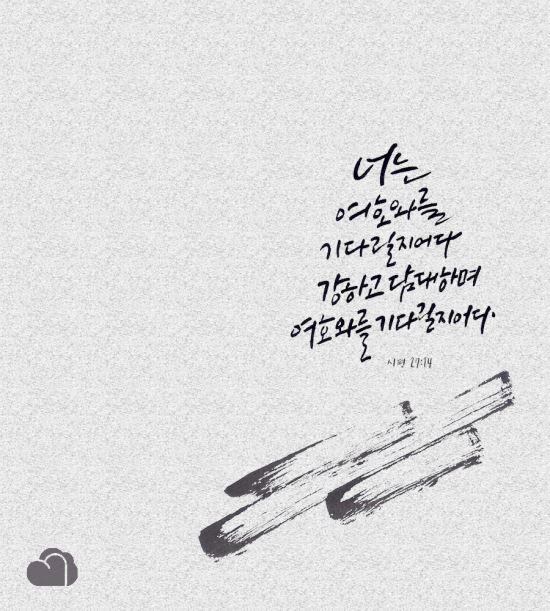 너는
여호와를
기다릴지어다
강하고 담대하며
여호와를 기다릴지어다.
시편 27:14